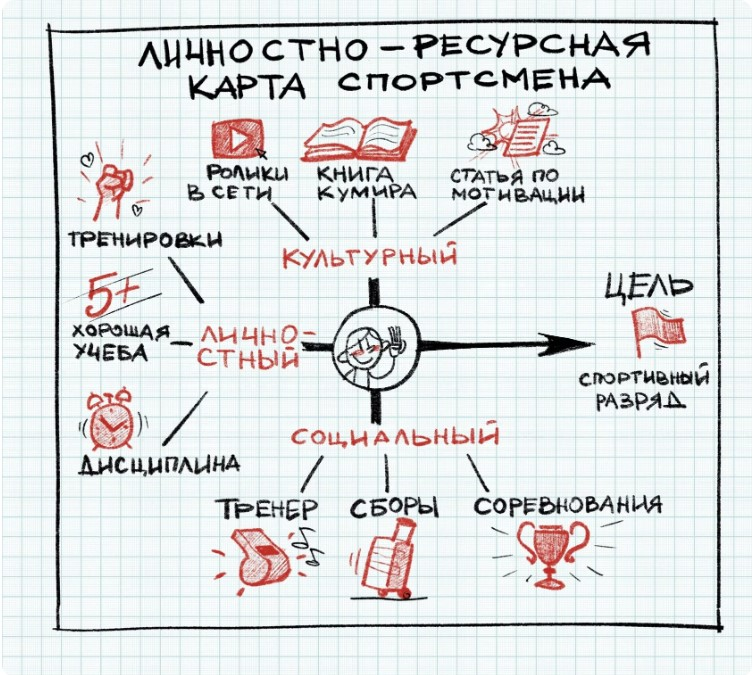 ЛИЧНОСТНО – РЕСУРСНАЯ
КАРТА СПОРТСМЕНА
РОЛИКИ
В СЕТИ
КНИГА
КУМИРА
СТАТЬЯ ПО
МОТИВАЦИИ
КУЛЬТУРНЫЙ
ТРЕНИРОВКИ
5+
ХОРОШАЯ
УЧЕБА
ДИСЦИПЛИНА
ЛИЧНО-
СТНЫЙ
ЦЕЛЬ
СПОРТИВНЫЙ
РАЗРЯД
СОЦИАЛЬНЫЙ
ТРЕНЕР
СБОРЫ
СОРЕВНОВАНИЯ